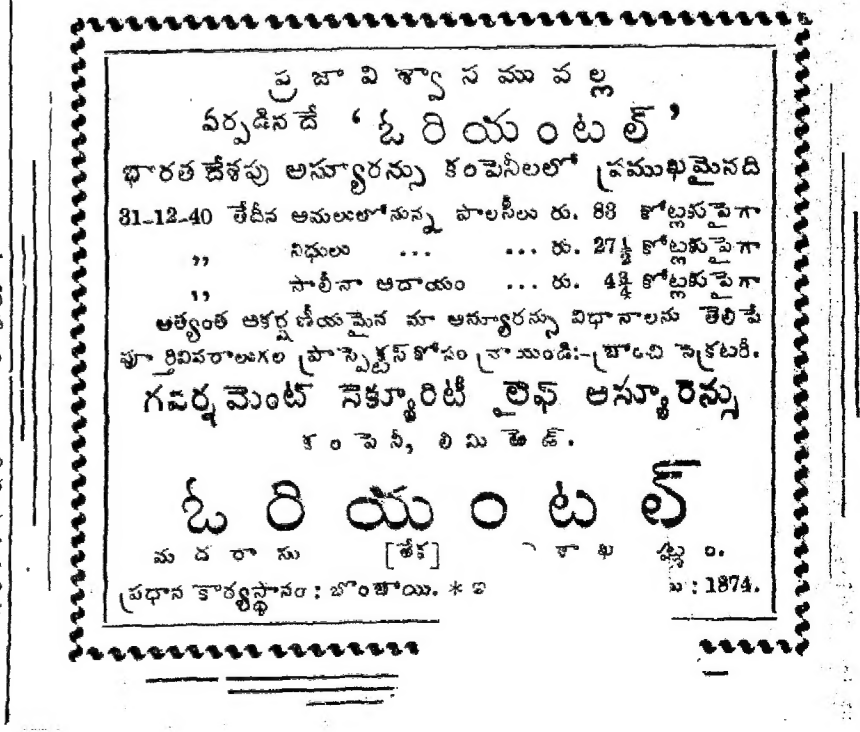 ప్రజావిశ్వాసమువల్ల
ఏర్పడినదే ‘ఓరియంటల్’
భారత దేశపు అస్యూరన్సు కంపెనీలలో ప్రముఖమైనది
31-12-40 తేదీన అమలులోనున్న పాలసీలు రు. 83 కోట్లకుపైగా
,, నిధులు ... ... రు. 27½ కోట్లకుపైగా
,, సాలీనా ఆదాయం ... రు. 4¾ కోట్లకుపైగా
అత్యంత ఆకర్షణీయమైన మా అస్యూరన్సు విధానాలను తెలిపే
పూర్తివివరాలుగల ప్రాస్పెక్టస్‌కోసం వ్రాయండి:-బ్రాంచి సెక్రటరీ.
గవర్నమెంట్ సెక్యూరిటీ లైఫ్ అస్యూరెన్సు
కంపెనీ, లిమిటెడ్.
ఓరియంటల్
మదరాసు [లేక]
ప్రధాన కార్యస్థానం: బొంబాయి. * : 1874.